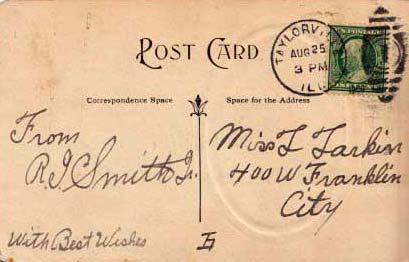 POST CARD
TAYLORVI
AUG 25
3 PM
ILL
Correspondence Space
Space for the Address
From
R J Smith Jr.
With Best Wishes
Miss L Larkin
400 W Franklin
City